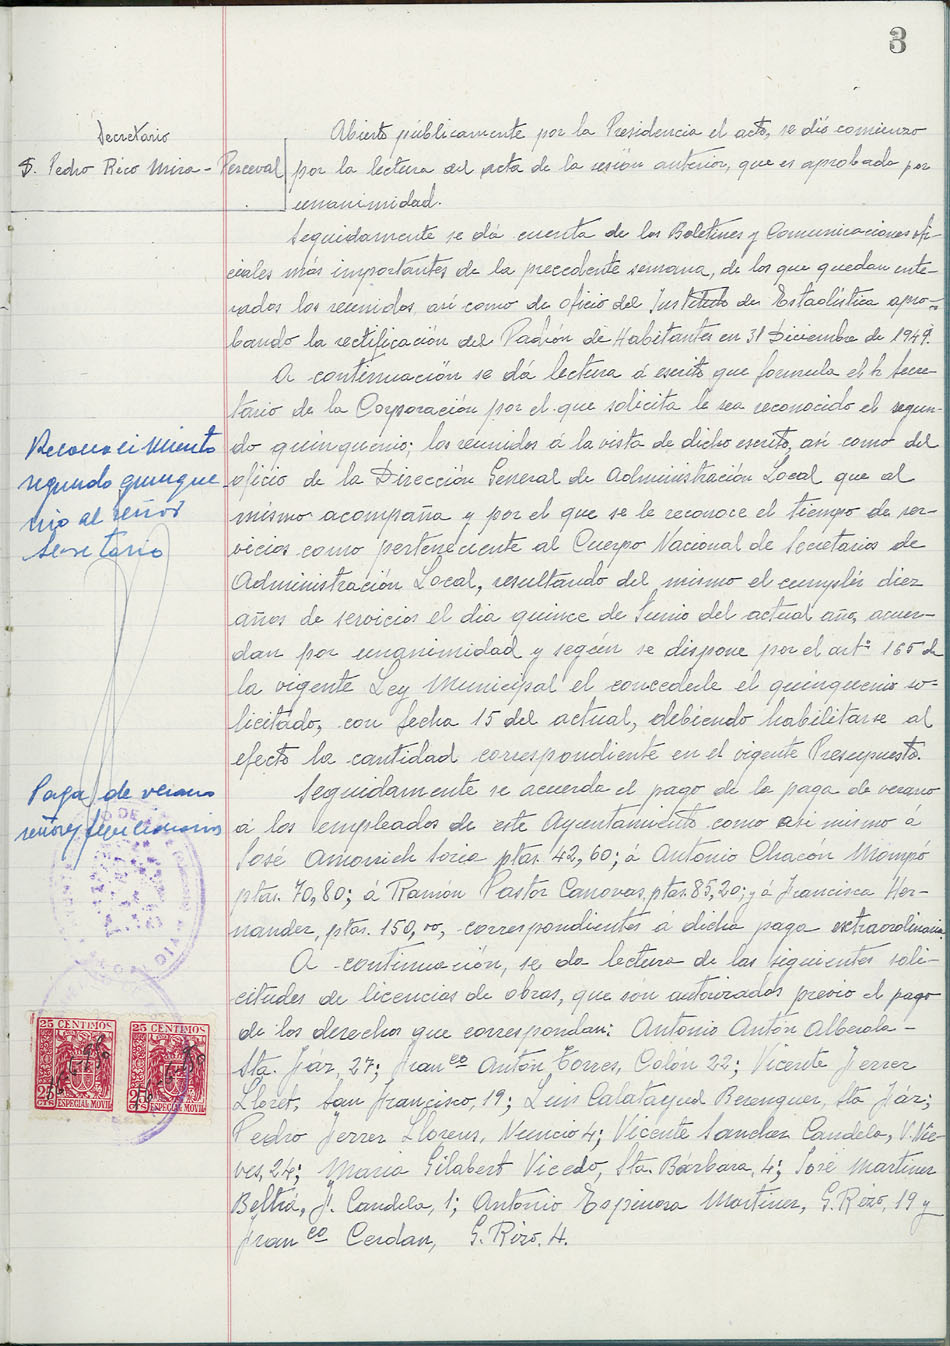 3
Secretario
D. Pedro Rico Mira - Perceval
Abierto públicamente por la Presidencia el acto, se dió comienzo
por la lectura del acta de la sesión anterior, que es aprobada por
unanimidad.
Seguidamente se dá cuenta de los Boletines y Comunicaciones ofi-
ciales más importantes de la precedente semana, de los que quedan ente-
rados los reunidos, así como de oficio del Instituto de Estadística apro-
bando la rectificación del Padrón de Habitantes en 31 Diciembre de 1949.
A continuación se dá lectura á escrito que formula el Secre-
tario de la Corporación por el que solicita le sea reconocido el segun-
do quinquenio; los reunidos á la vista de dicho escrito, así como del
oficio de la Dirección General de Administración Local que al
mismo acompaña y por el que se le reconoce el tiempo de ser-
vicios como perteneciente al Cuerpo Nacional de Secretarios de
Administración Local, resultando del mismo el cumplir diez
años de servicios el dia quince de Junio del actual año, acuer-
dan por unanimidad y según se dispone por el artº 165 de
la vigente Ley Municipal el concederle el quinquenio so-
licitado, con fecha 15 del actual, debiendo habilitarse al
efecto la cantidad correspondiente en el vigente Presupuesto.
Seguidamente se acuerda el pago de la paga de verano
á los empleados de este Ayuntamiento como asi mismo á
José Amorich Soria ptas. 42,60; á Antonio Chacón Mompó
ptas. 70,80; á Ramón Pastor Canovas, ptas. 85,20; y á Francisca Her-
nandez, ptas. 150,00, correspondientes á dicha paga extraordinaria.
A continuación, se da lectura de las siguientes soli-
citudes de licencias de obras, que són autorizados previo el pago
de los derechos que correspondan: Antonio Antón Alberola -
Sta. Fáz, 27; Franco Antón Torres, Colón 22; Vicente Ferrer
Lloret, San Francisco, 19; Luis Calatayud Berenguer, Sta Fáz;
Pedro Ferrer Llorens, Nuncio 4; Vicente Sanchez Candela, V. Nie-
ves, 24; Maria Gilabert Vicedo, Sta. Bárbara, 4; José Martinez
Beltrá, J. Candela, 1; Antonio Espinosa Martinez, G. Rizo, 19 y
Franco Cerdan, G. Rizo, 4.
Reconocimiento
segundo quinque
nio al señor
Secretario
Paga de verano
señores funcionarios
25 CENTIMOS
25 CTS
ESPECIAL MOVIL
25 CENTIMOS
25 CTS
ESPECIAL MOVIL